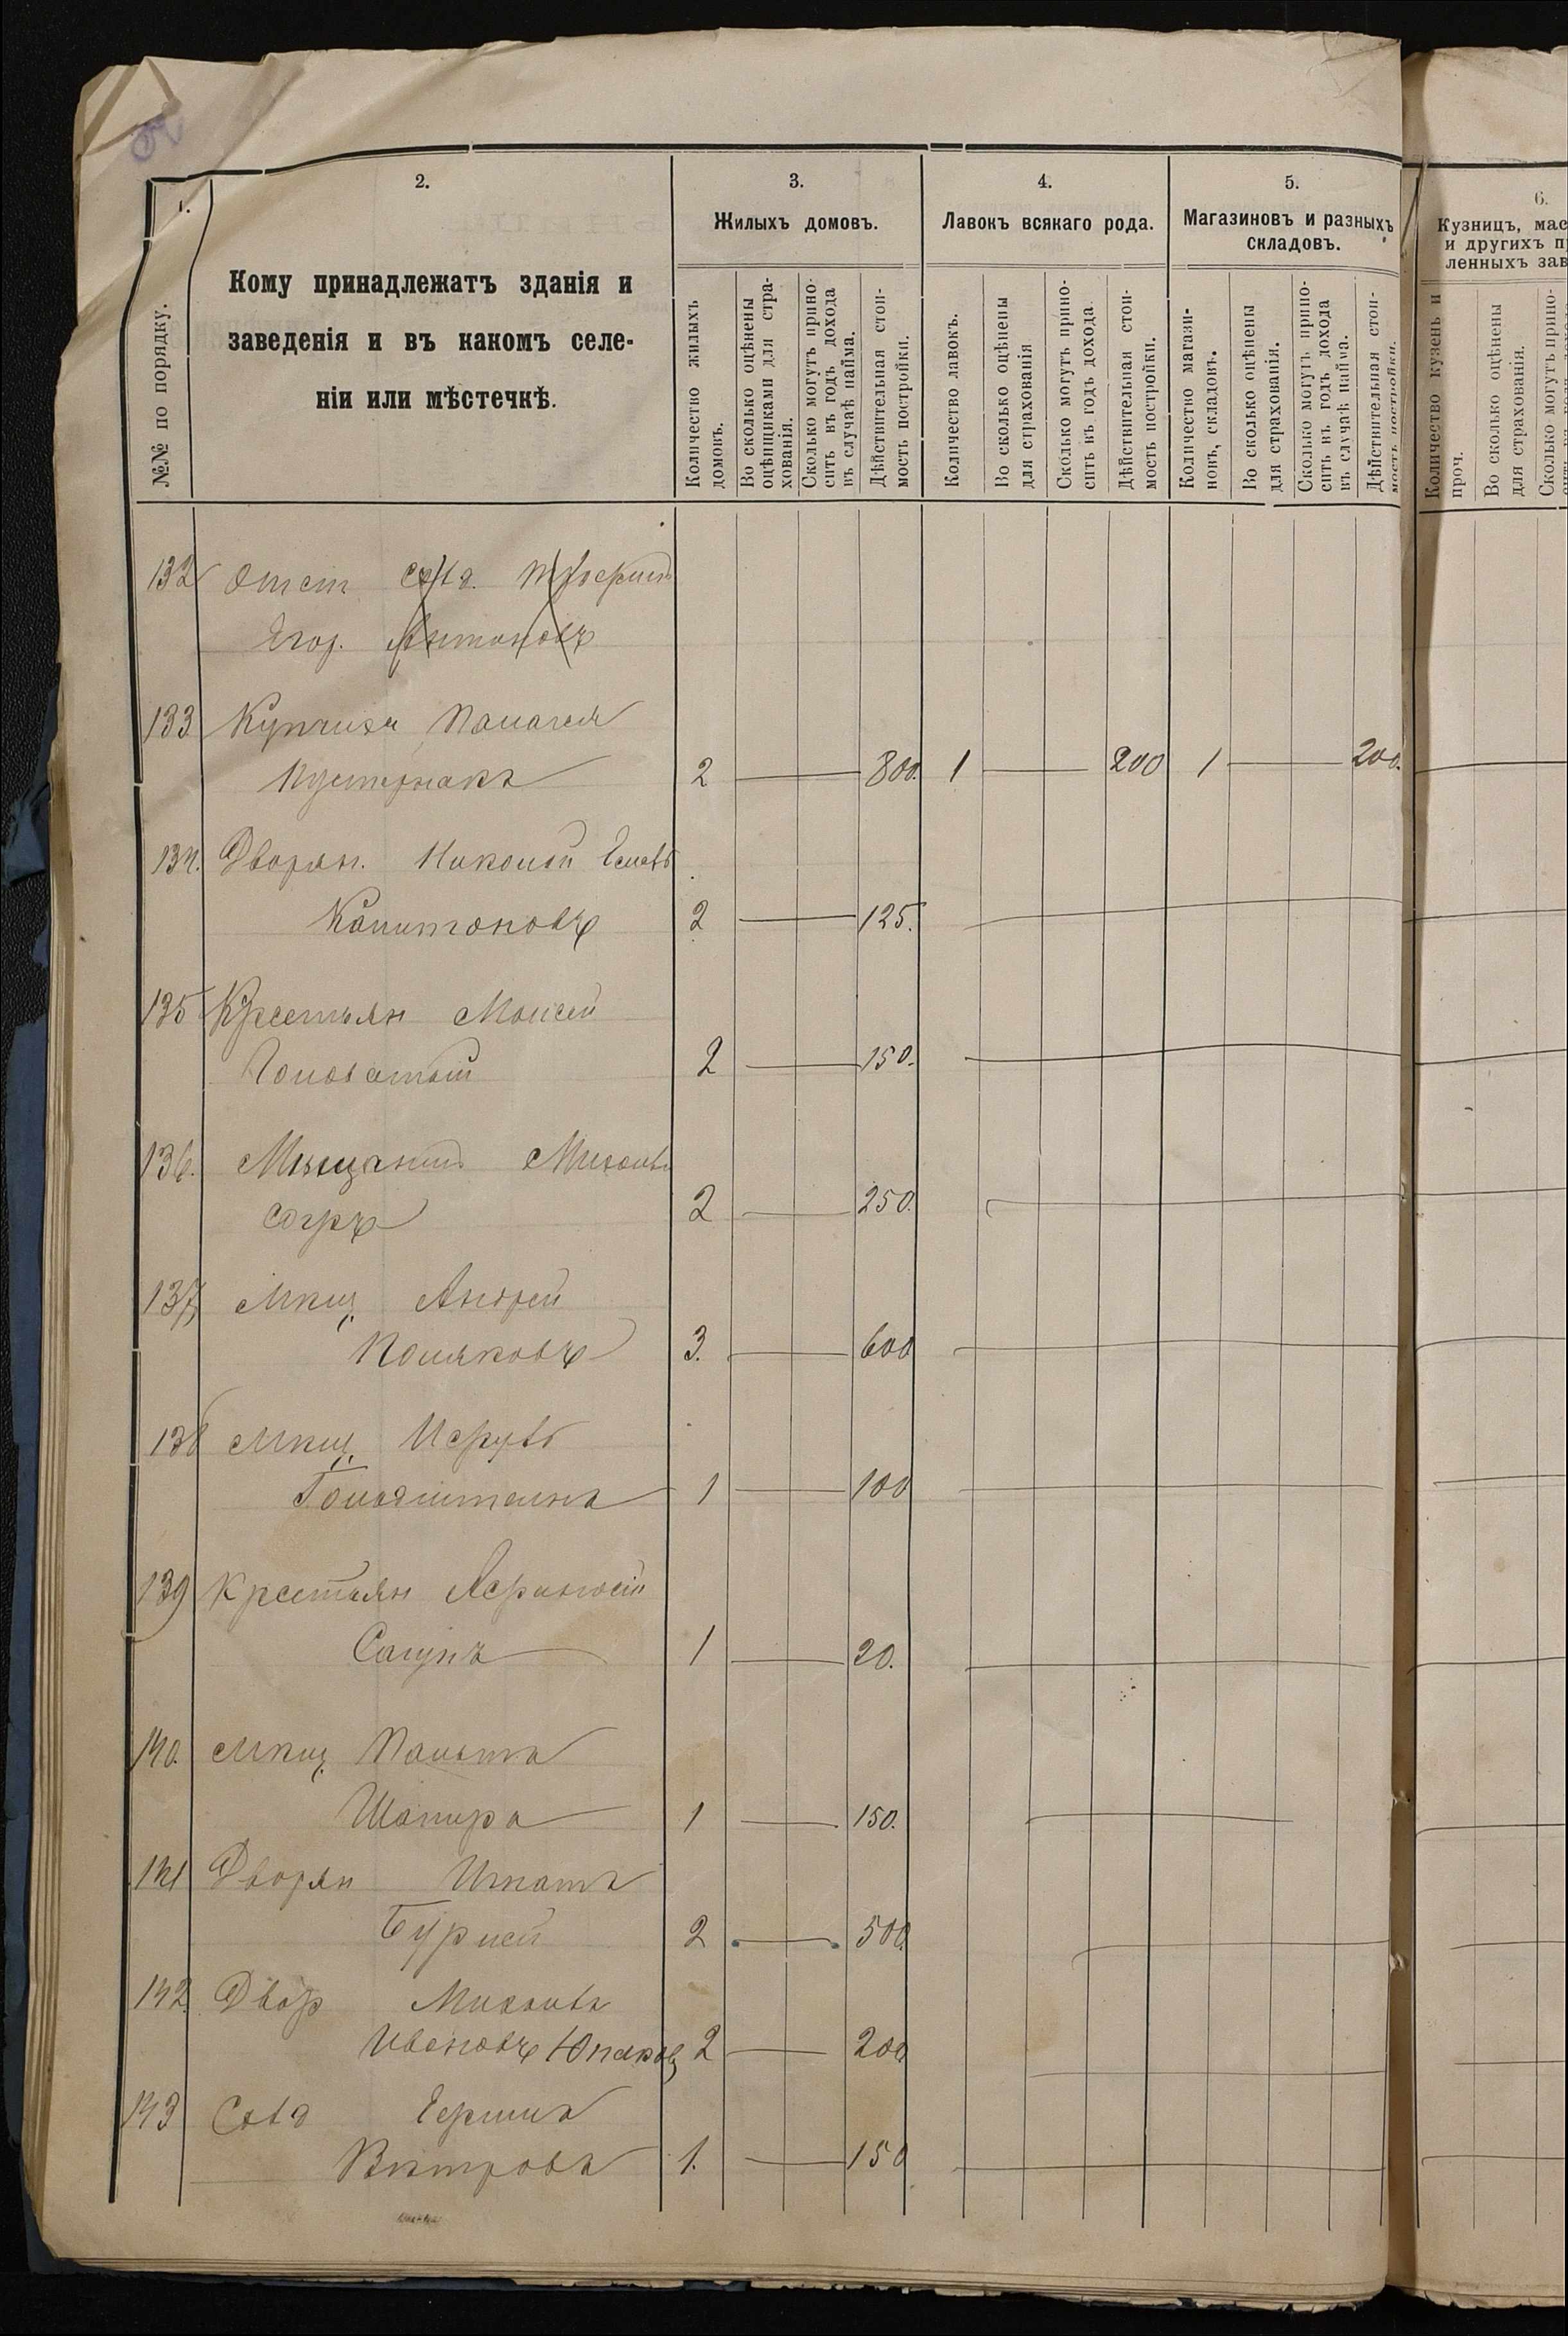 1.
2.
3.
4.
5.
6.
№№ по порядку.
Кому принадлежатъ зданія и
заведенія и въ какомъ селе-
ніи или мѣстечкѣ.
Жилыхъ домовъ.
Количество жилыхъ
домовъ.
Во сколько оцѣнены
оцѣнщиками для стра-
хованія.
Сколько могутъ прино-
сить въ годъ дохода
въ случаѣ найма.
Дѣйствительная стои-
мость постройки.
Лавокъ всякаго рода.
Количество лавокъ.
Во сколько оцѣнены
для страхованія
Сколько могутъ прино-
сить въ годъ дохода.
Дѣйствительная стои-
мость постройки.
Магазиновъ и разныхъ
складовъ.
Количество магази-
новъ, складовъ.
Во сколько оцѣнены
для страхованія.
Сколько могутъ прино-
сить въ годъ дохода
въ случаѣ найма.
Дѣйствительная стои-
мость постройки.
Кузницъ, мас
и другихъ п
ленныхъ зав
Количество кузень и
проч.
Во сколько оцѣнены
для страхованія.
Сколько могутъ прино-
132 Отст
Егор. Антоновъ
133 Купчиха
2 800. 1 200 1 200.
134. Дворян. Николай
Капитоновъ 2 125.
135 Крестьян Моисей
Головатый 2 150.
136. Мѣщанинъ Михаилъ
2 250.
137 Мѣщ Андрей
Поляковъ 3. 600
138 Мѣщ
Гольдштейнъ 1 100
139 Крестьян
1 20.
140. Мѣщ
Шапира 1 150.
141 Дворян Игнатъ
2 500.
142. Двор Михаилъ
Ивановъ 2 200
143
Вѣтрова 1. 150